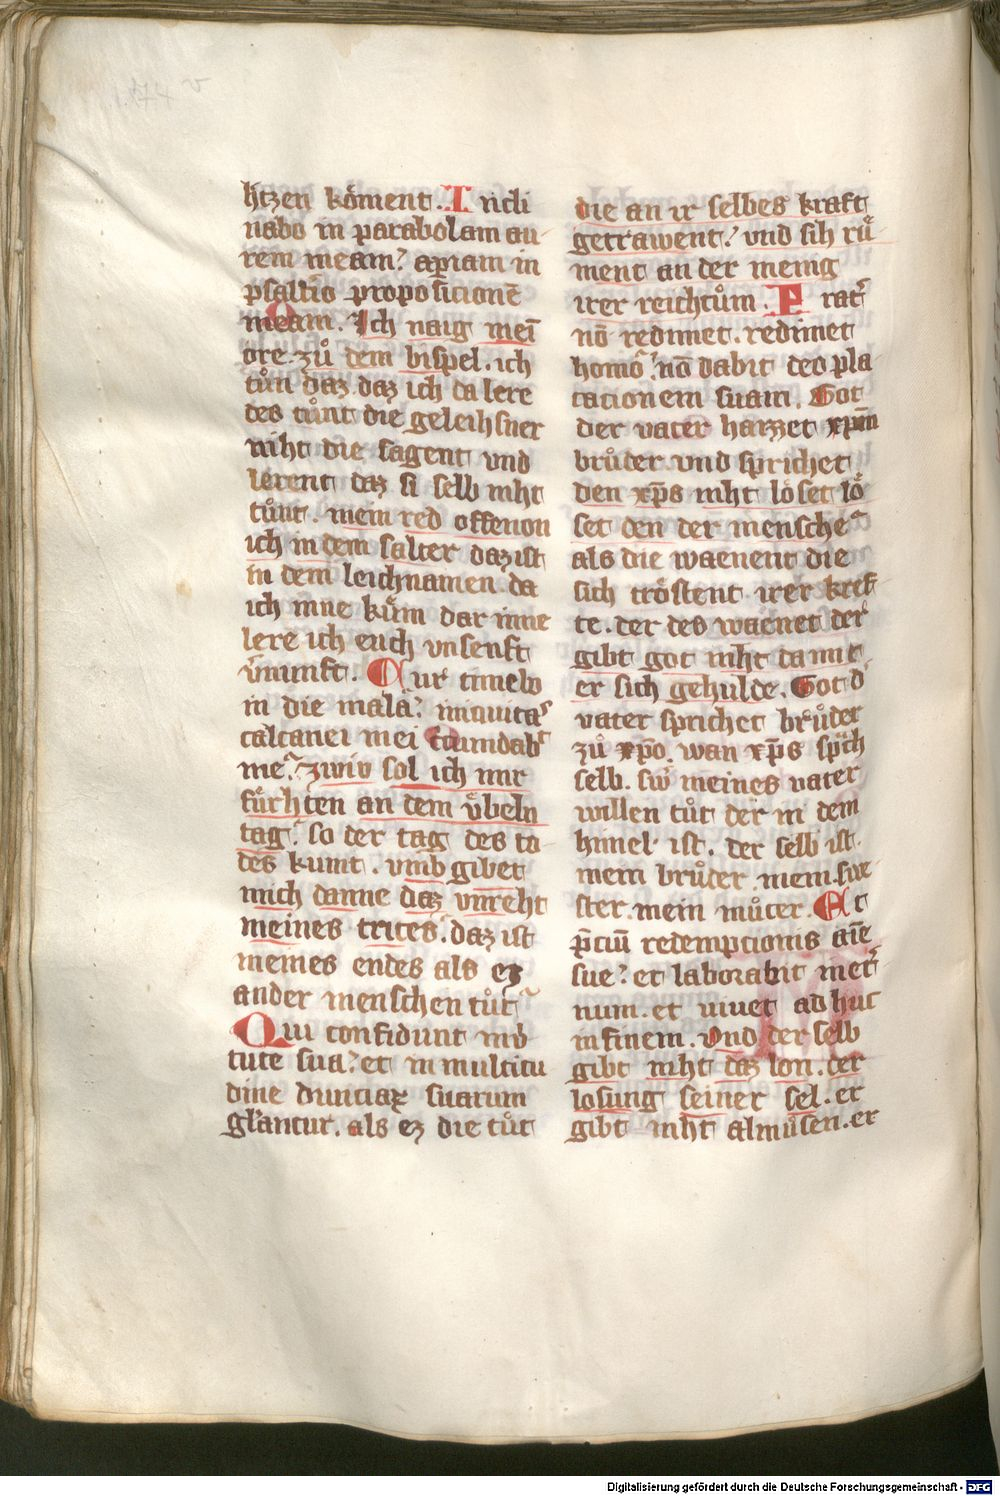 174 v
hitzen koͤment. Incli
nabo in parabolam au
rem meam? apiam in
psaltio proposicionē
meam. Ich naig meī
ore zuͦ dem bispel. ich
tuͦn daz daz ich da lere
des tuͦnt die geleihsner
niht die sagent vnd
lerent daz si selb niht
tuͦnt. mein red offenon
ich in dem salter daz ist
in dem leichnamen. da
ich inne kuͤm dar inne
lere ich euch vnsenft
v̄nunft. Curͬ timebo
in die mala? iniquitaˢ
calcanei mei circumdabͭ
me? zwiv sol ich mir
fuͤrhten an dem vͤbeln
tag? so der tag des to
des kumt. vmb gibet
mich danne daz vnreht
meines trites. daz ist
meines endes als ez
ander menschen tuͦt
Qui confidunt in vͬ
tute sua? et in multitu
dine diuiciaꝝ suarum
glantur. als ez die tuͦt
die an ir selbes kraft
getrawent? vnd sih ruͤ
ment an der menig
irer reichtuͦm. Fratͬ
nō redimet. redimet
homō? nō dabit deo pla
cationem suam. Got
der vater haizzet xp̄m
bruͦder vnd sprichet
den xp̄s niht loͤset loͤ
set den der mensche
als die waenent die
sich troͤstent irer kref
te. der des waenet der
gibt got niht da mit
er sich gehulde. Got dͬ
vater sprichet bruͦder
zuͦ xp̄o. wan xp̄s spͣch
selb. swͬ meines vater
willen tuͦt der in dem
himel ist. der selb ist
mein bruͦder. mein swe
ster. mein muͦter. Et
p̄ciū redemptionis aīe
sue? et laborabit in etͬ
num. et viuet ad huc
in finem. Vnd der selb
gibt niht daz lon. der
losung seiner sel. er
gibt niht almuͦsen. er
Digitalisierung gefördert durch die Deutsche Forschungsgemeinschaft - DFG